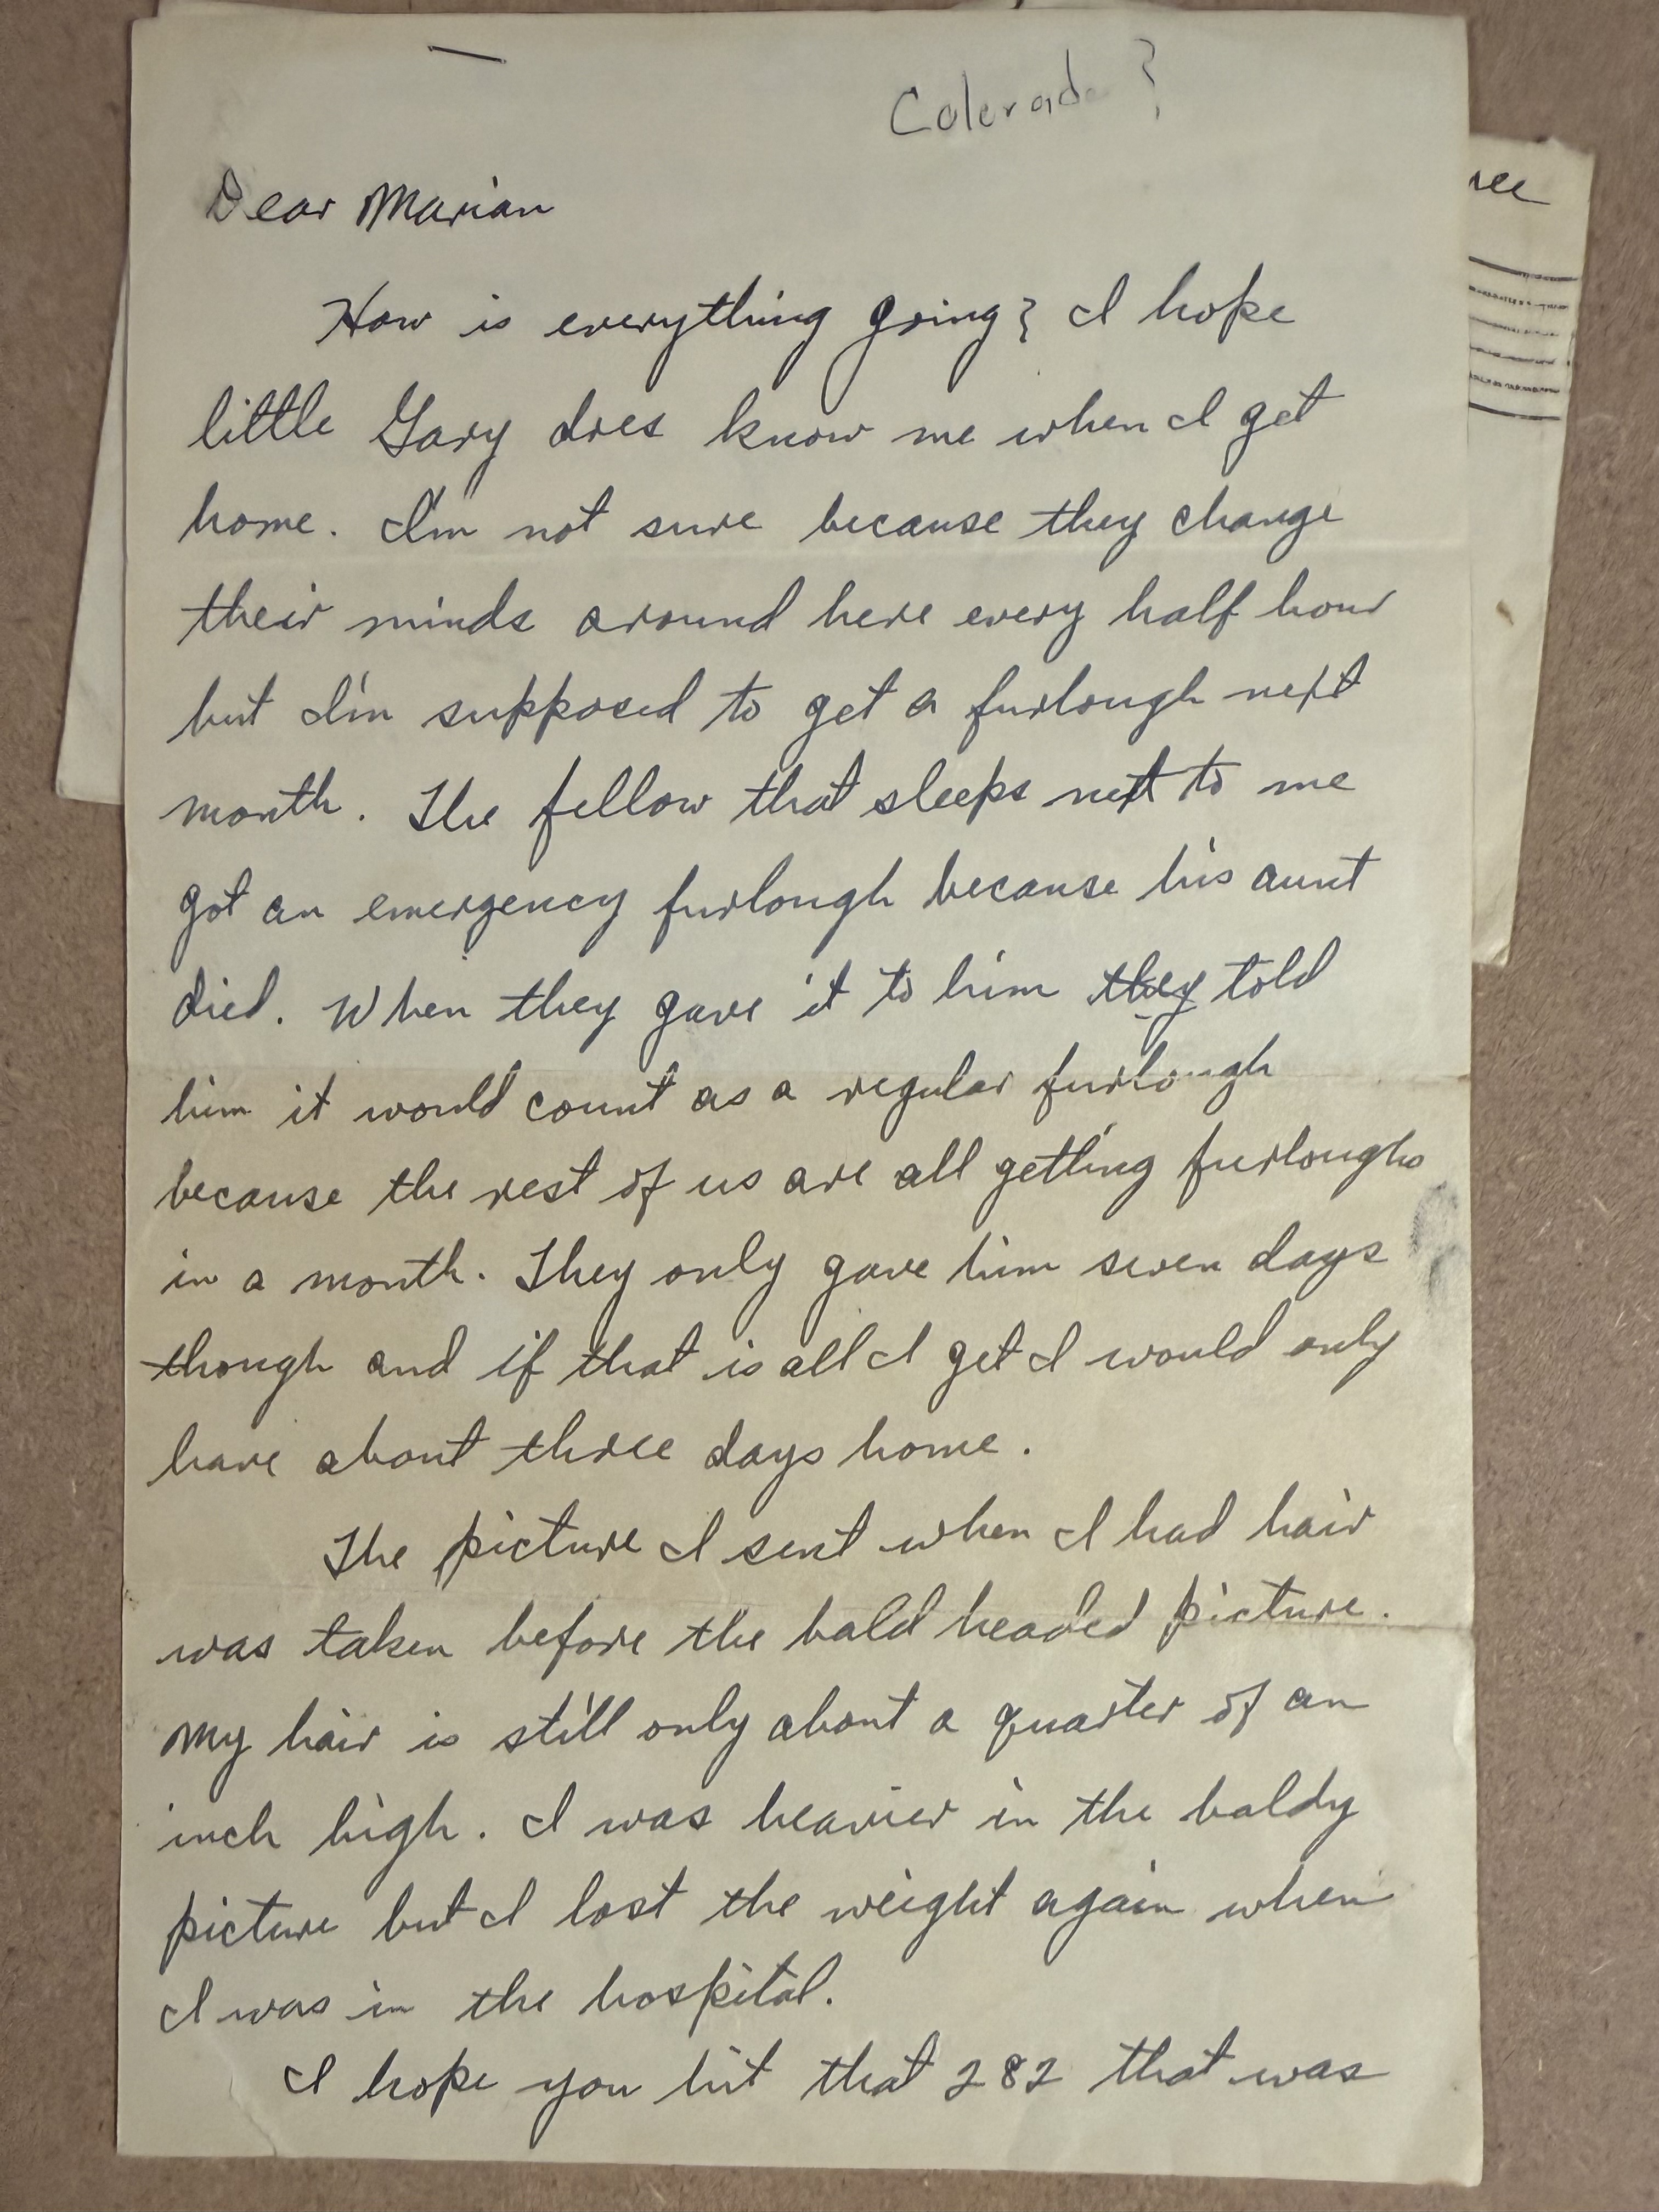 Colerado ?
Dear Marian
How is everything going? I hope
little Gary does know me when I get
home. I'm not sure because they change
their minds around here every half hour
but I'm supposed to get a furlough next
month. The fellow that sleeps next to me
got an emergency furlough because his aunt
died. When they gave it to him they told
him it would count as a regular furlough
because the rest of us are all getting furloughs
in a month. They only gave him seven days
though and if that is all I get I would only
have about three days home.
The picture I sent when I had hair
was taken before the bald headed picture.
My hair is still only about a quarter of an
inch high. I was heavier in the baldy
picture but I lost the weight again when
I was in the hospital.
I hope you hit that 282 that was